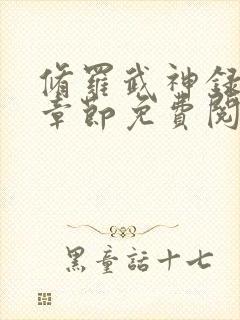 脩羅武神錄
章節免費閱
黑童話十七